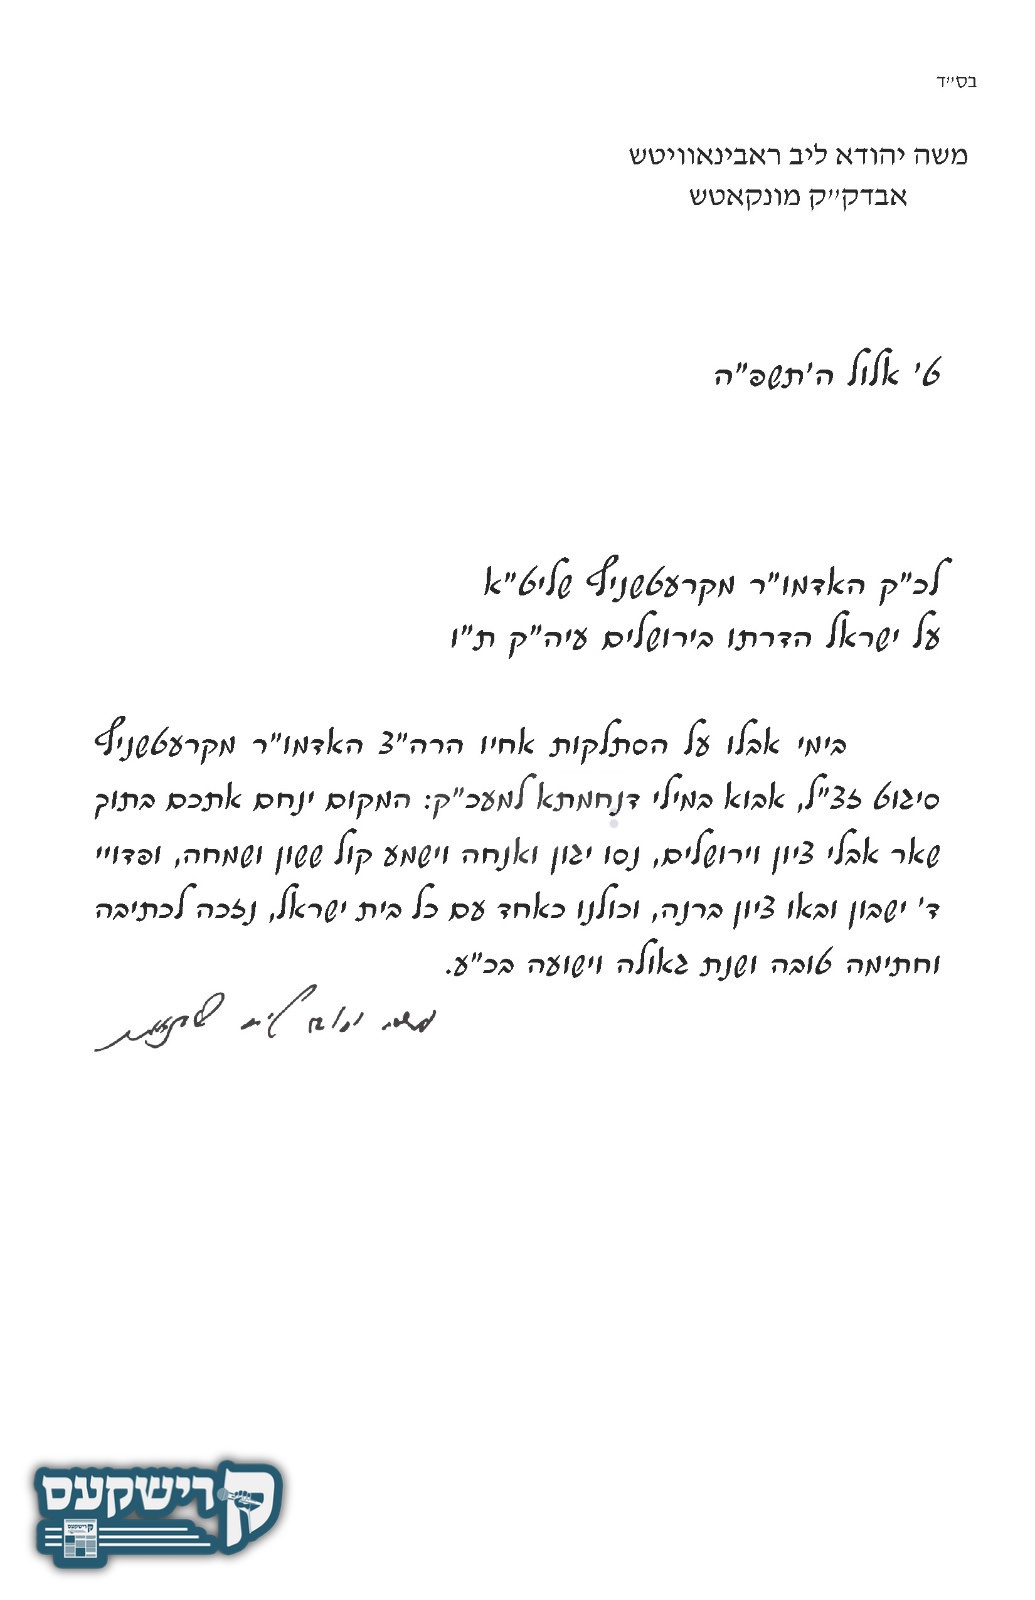 בס״ד
משה יהודא ליב ראבינאוויטש
אבדק״ק מונקאטש
ט' אלול ה'תשפ"ה
לכ"ק האדמו"ר מקרעטשניף שליט"א
על ישראל הדרתו בירושלים עיה"ק ת"ו
בימי אבלו על הסתלקות אחיו הרה"צ האדמו"ר מקרעטשניף
סיגוט זצ"ל, אבוא במילי דנחמתא למעכ"ק: המקום ינחם אתכם בתוך
שאר אבלי ציון וירושלים, נסו יגון ואנחה וישמע קול ששון ושמחה, ופדויי
ד' ישבון ובאו ציון ברנה, וכולנו כאחד עם כל בית ישראל, נזכה לכתיבה
וחתימה טובה ושנת גאולה וישועה בכ"ע.
משה יהודא ליב
קרישקעס